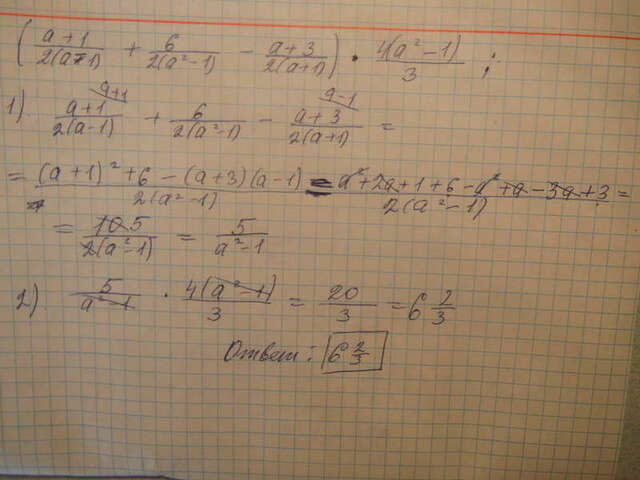 ( (a+1)/(2(a-1)) + 6/(2(a²-1)) - (a+3)/(2(a+1)) ) · 4(a²-1)/3 ;
1). (a+1)/(2(a-1)) ^(a+1) + 6/(2(a²-1)) - (a+3)/(2(a+1)) ^(a-1) =
= ((a+1)²+6-(a+3)(a-1))/(2(a²-1)) = (a²+2a+1+6-a²+a-3a+3)/(2(a²-1)) =
= 10 5/(2(a²-1)) = 5/(a²-1)
2) 5/(a²-1) · 4(a²-1)/3 = 20/3 = 6 2/3
Ответ: 6 2/3